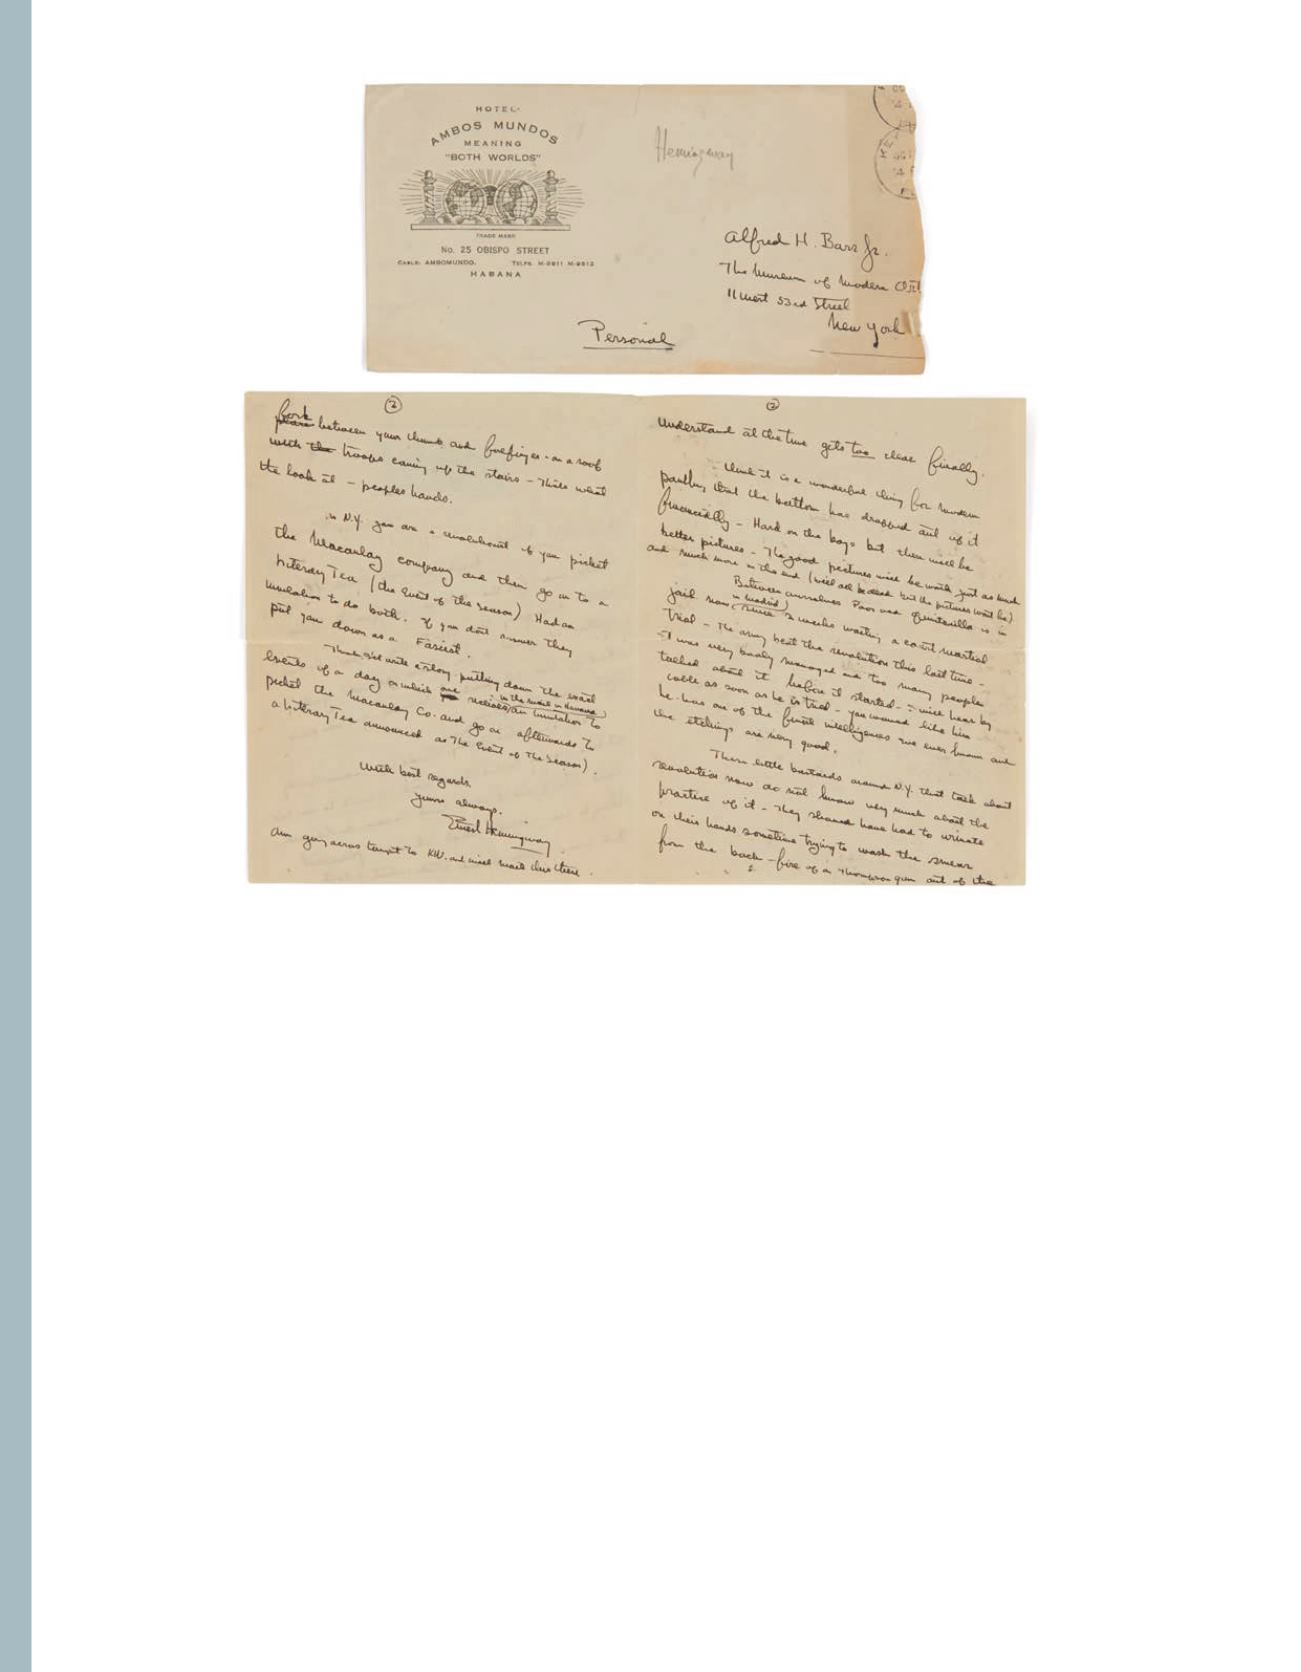 HOTEL
AMBOS MUNDOS
MEANING
"BOTH WORLDS"
TRADE MARK
No. 25 OBISPO STREET
CABLE: AMBOMUNDO. TELFS. M-9811 M-9812
HABANA
Hemingway
Alfred H. Barr Jr.
The Museum of Modern Art
11 West 53rd Street
New York
Personal
3
fork
between your thumb and forefinger - on a roof
with the troops coming up the stairs - Thats what
to look at - peoples hands.
In N.Y. you are a revolutionist if you picket
the Macaulay company and then go on to a
Literary Tea (the Event of the season) Had an
invitation to do both. If you dont answer they
put you down as a Fascist.
Think I'll write a story putting down the exact
events of a day on which one receives (in the mail in Havana) an invitation to
picket the Macaulay Co. and go on afterwards to
a Literary Tea announced as The Event of The Season).
With best regards.
Yours always.
Ernest Hemingway
Am going across tonight to KW. and will mail this there.
2
understand at the time gets too clear finally.
I think it is a wonderful thing for modern
painting that the bottom has dropped out of it
financially - Hard on the boys but there will be
better pictures - The good pictures will be worth just as much
and much more in the end (we'll all be dead but the pictures wont be)
Between ourselves Poor old Quintanilla is in
jail now (in Madrid) since 2 weeks waiting a court martial
trial - The army beat the revolution this last time -
It was very badly managed and too many people
talked about it before it started - I will hear by
cable as soon as he is tried - you would like him
he has one of the finest intelligences I've ever known and
the etchings are very good.
These little bastards around N.Y. that talk about
revolution now do not know very much about the
practice of it - They should have had to urinate
on their hands sometime trying to wash the smear
from the back-fire of a Thompson gun out of the